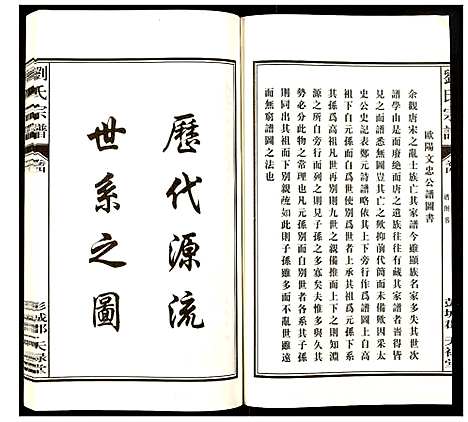 歐陽文忠公譜圖書
余觀唐宋之亂士族亡其家譜今雖顯族名家多失其世次
譜學由是而廢絕而唐之遺族往往有藏其家譜者吾得皆
見之而譜悉無豈其亡之歟抑前代簡而未備歟因采太
史公史記表鄭元詩譜略依其上下旁行作爲譜圖上自高
祖下自元孫而別自爲世使別爲世者上承其祖爲元孫下系
其孫爲高祖凡世再別而九族之親備推而上下之則知
源之所自旁行而列之則見子孫之多寡夫惟多與久其
勢必分此物之常理也凡元孫別而自別則各繫其子孫
則同出其祖而下別親疏如此則子孫雖多而不亂世雖遠
而無窮譜圖之法也
歷代源流
世系之圖
劉氏宗譜
彭城郡
天祿堂